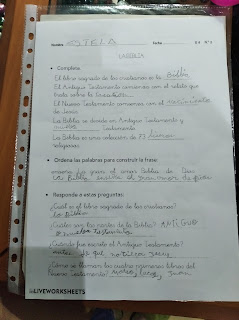 Nombre: Fecha: N.º
LA BIBLIA
Completa:
El libro sagrado de los cristianos es la Biblia
El Antiguo Testamento comienza con el relato
que trata sobre la
El Nuevo Testamento comienza con el nacimiento
de Jesús
La Biblia se divide en Antiguo Testamento y
nuevo Testamento
La Biblia es una colección de libros
religiosos
Ordena las palabras para construir la frase:
amor Biblia de Dios
La Biblia gran amor de Dios
Responde a estas preguntas:
¿Cuál es el libro sagrado de los cristianos?
la Biblia
¿Cuáles son las partes de la Biblia? ANTIGUO
nuevo Testamento
¿Cuándo fue escrito el Antiguo Testamento?
antes de que
¿Cómo se llaman los cuatro primeros libros del
Nuevo Testamento? Juan
LIVEWORKSHEETS